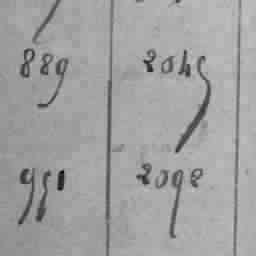 889 2045
951 2092